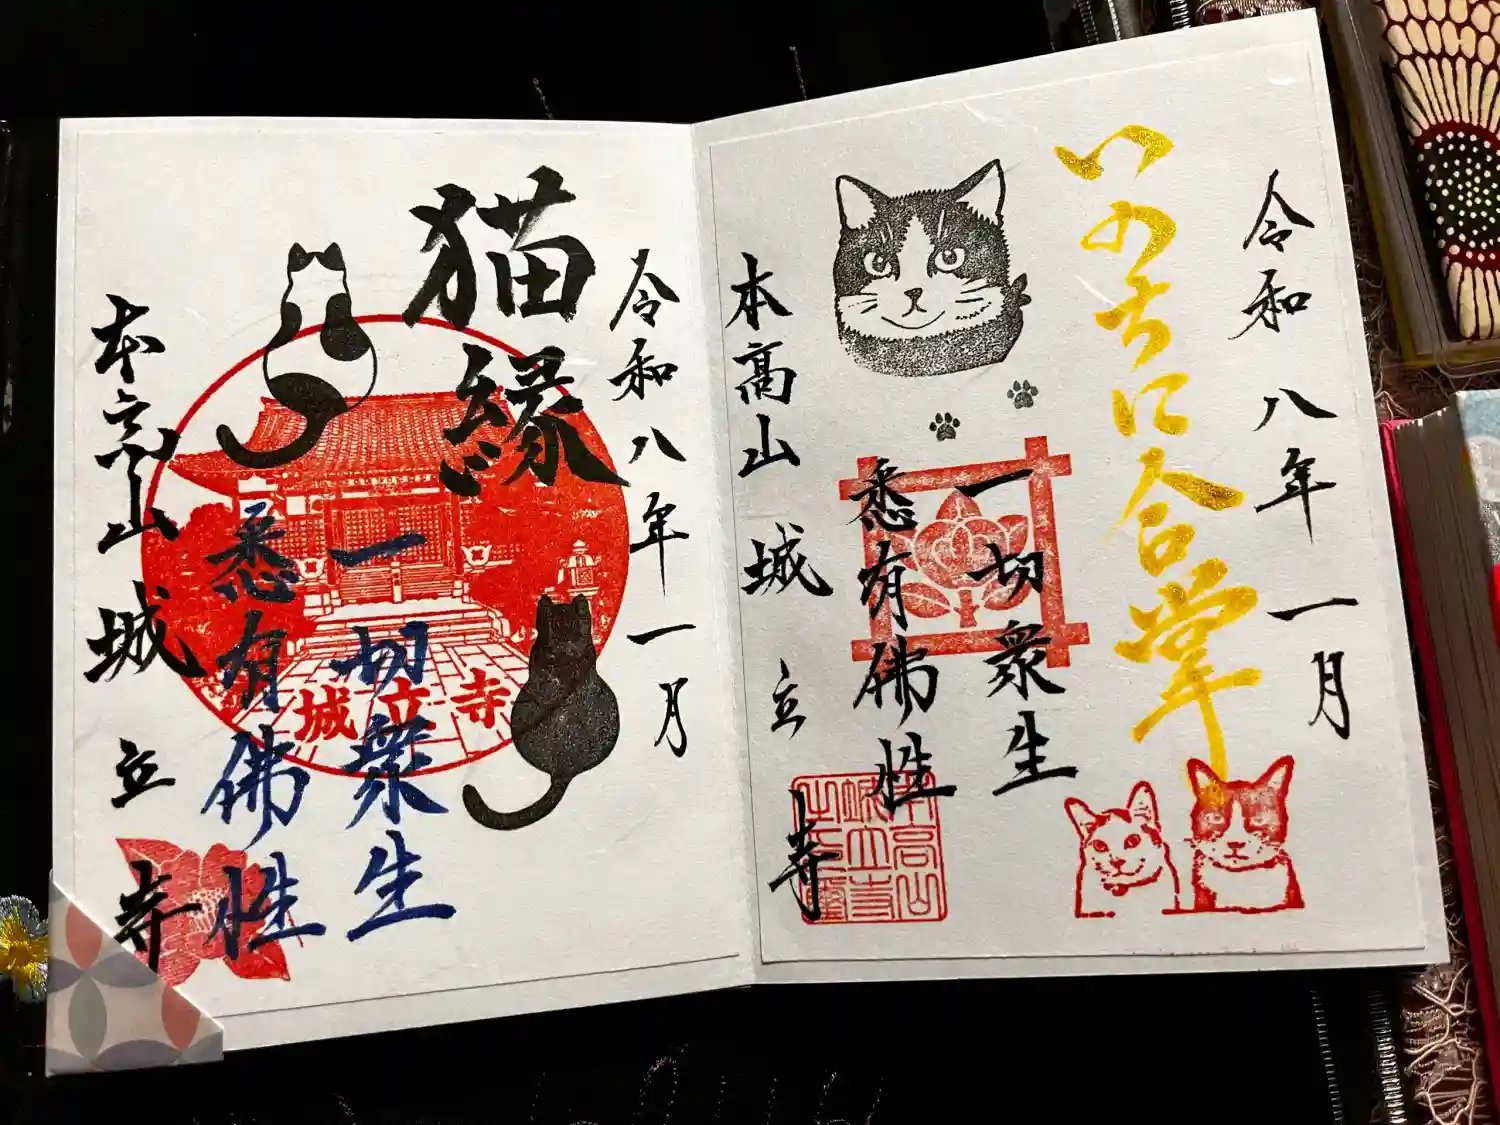 令和 八年 一月
いのちに合掌
一切衆生
悉有佛性
本高山 城立寺
令和八年一月
猫縁
一切衆生
悉有佛性
城立寺
本高山 城立寺